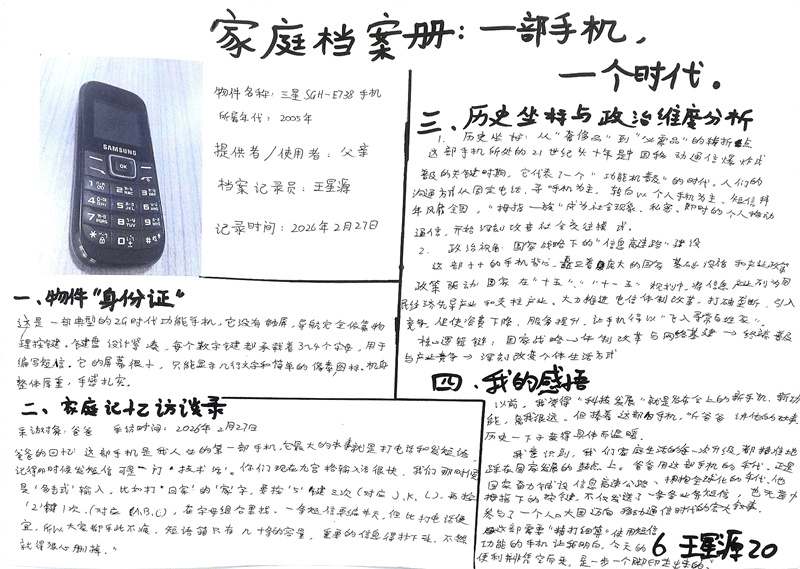 家庭档案册：一部手机，
一个时代。
SAMSUNG
物件名称：三星SGH-E738手机
所属年代：2005年
提供者/使用者：父亲
档案记录员：王星源
记录时间：2026年2月27日
一、物件“身份证”
这是一部典型的2G时代功能手机，它没有触屏，导航完全依靠物
理按键。键盘设计紧凑，每个数字键都承载着3个4个字母，用于
编写短信。它的屏幕很小，只能显示几行文字和简单的像素图标。机身
整体厚重，手感扎实。
二、家庭记忆访谈录
采访对象：爸爸 采访时间：2026年2月27日
爸爸的回忆“这部手机是我人生的第一部手机，它最大的
就是打电话和发短信。
记得那时候发短信可是一门“技术活”。你们现在九宫格输入法很快，我们那时候
是‘多击式’输入，比如打“回家”的‘家’字，要按‘5’键三次（对应J、K、L），再按
‘2’键1次（对应A、B、C），在字母组合里找。一条短信编半天，但比打电话便
宜，所以大家都乐此不疲。短信箱只有几十条的容量，重要的信息得抄下来，不然
就得狠心删掉。”
三、历史坐标与政治维度分析
1. 历史坐标：从“奢侈品”到“必需品”的转折点
这部手机所处的21世纪头十年是中国移动通信爆炸式
普及的关键时期。它代表了一个“功能机普及”的时代，人们的
沟通方式从固定电话、寻呼机为主，转向以个人手机为主，短信拜
年风靡全国，“拇指一族”成为社会现象，私密、即时的个人移动
通信，开始深刻改变社会交往模式。
2. 政治视角：国家战略下的“信息高速路”建设
这部小小的手机背后，矗立着庞大的国家基础设施和产业政策
政策驱动 国家在“十五”、“十一五”规划中，将信息产业列为国
民经济先导产业和支柱产业。大力推进电信体制改革，打破垄断，引入
竞争，促使资费下降，服务提升，让手机得以“飞入寻常百姓家”。
核心逻辑链：国家战略→体制改革与网络基建→终端普及
与产业竞争→深刻改变个体生活方式
四、我的感悟
以前，我觉得“科技发展”就是发布会上的新手机、新功
能，离我很远。但摸着这部旧手机，听爸爸讲他的故事，
历史一下子变得具体而温暖。
我意识到，我们家庭生活的每一次升级，都精准地
踩在国家发展的鼓点上。爸爸用这部手机的年代，正是
国家奋力铺设信息高速公路、拥抱全球化的年代。他
拇指下的按键，不仅发送了一条条业务短信，也无意中
参与了一个大国迈向移动通信时代的宏大叙事。
这部需要“精打细算”使用短信
功能的手机让我明白，今天的
便利并非凭空而来，是一步一个脚印走出来的。
6 王星源 20